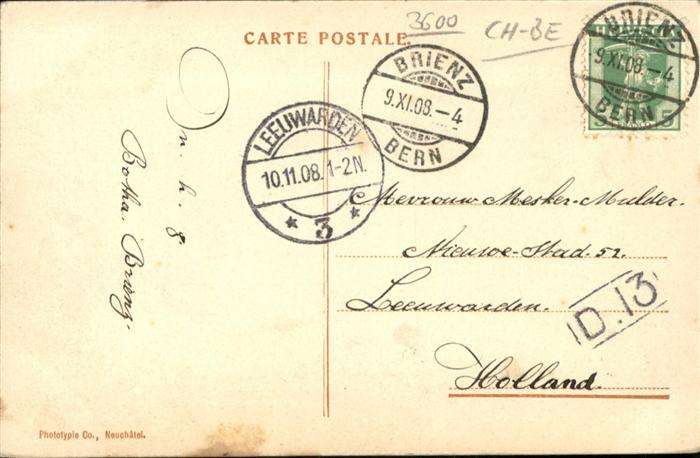 3600
CH-BE
CARTE POSTALE.
BRIENZ
9.XI.08.-4
BERN
BRIENZ
9.XI.08.-4
BERN
5
LEEUWARDEN
10.11.08.1-2N.
* 3 *
n. h. g
Botha. Brienz.
Mevrouw Mesker-Mulder.
Nieuwe-Stad. 52.
Leeuwarden.
Holland.
D.13
Phototypie Co., Neuchâtel.